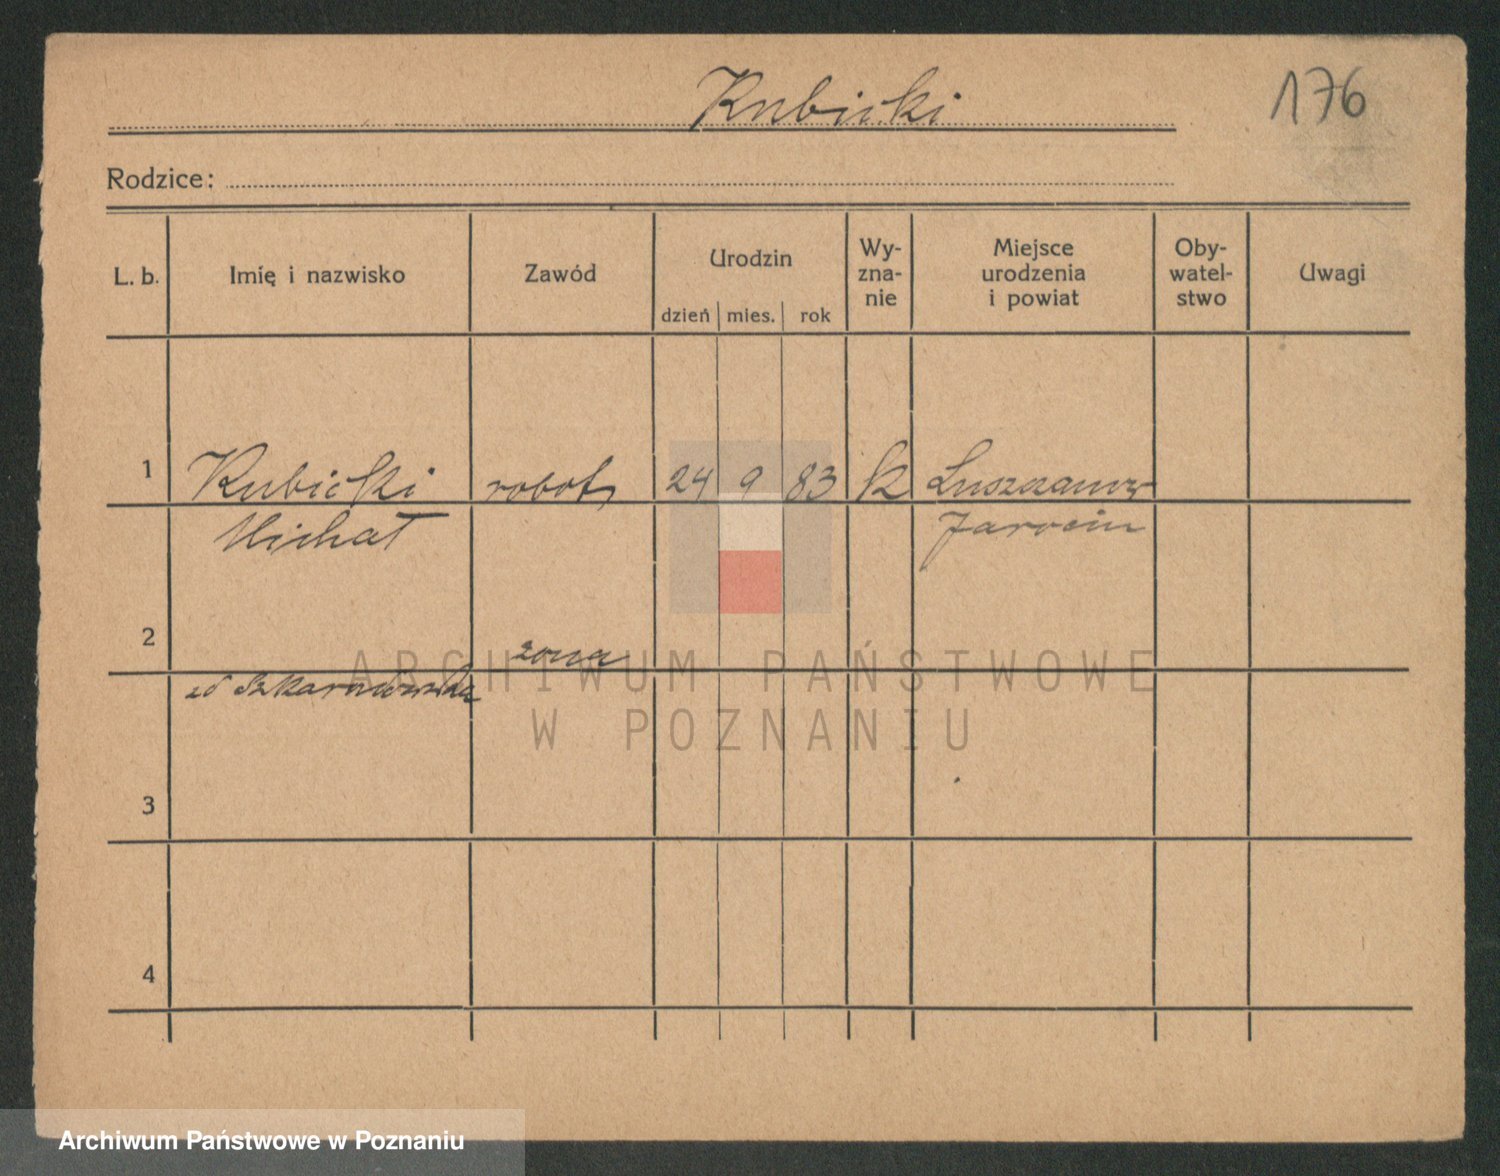 Kubicki
176
Rodzice:
L. b.
Imię i nazwisko
Zawód
Urodzin
dzień mies. rok
Wy-
zna-
nie
Miejsce
urodzenia
i powiat
Oby-
watel-
stwo
Uwagi
1 Kubicki robot 24 9 83 k
Michał Jarocin
2 żona
3
4
ARCHIWUM PAŃSTWOWE
W POZNANIU
Archiwum Państwowe w Poznaniu